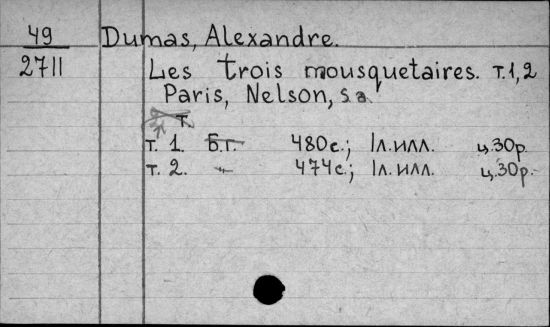 49 Dumas, Alexandre.
2711 Les trois mousquetaires. т.1,2
Paris, Nelson, s.a.
т.
т. 1. Б.г. 480с.; 1л.илл. ц.30р.
т. 2. -"- 474с.; 1л.илл. ц.30р.